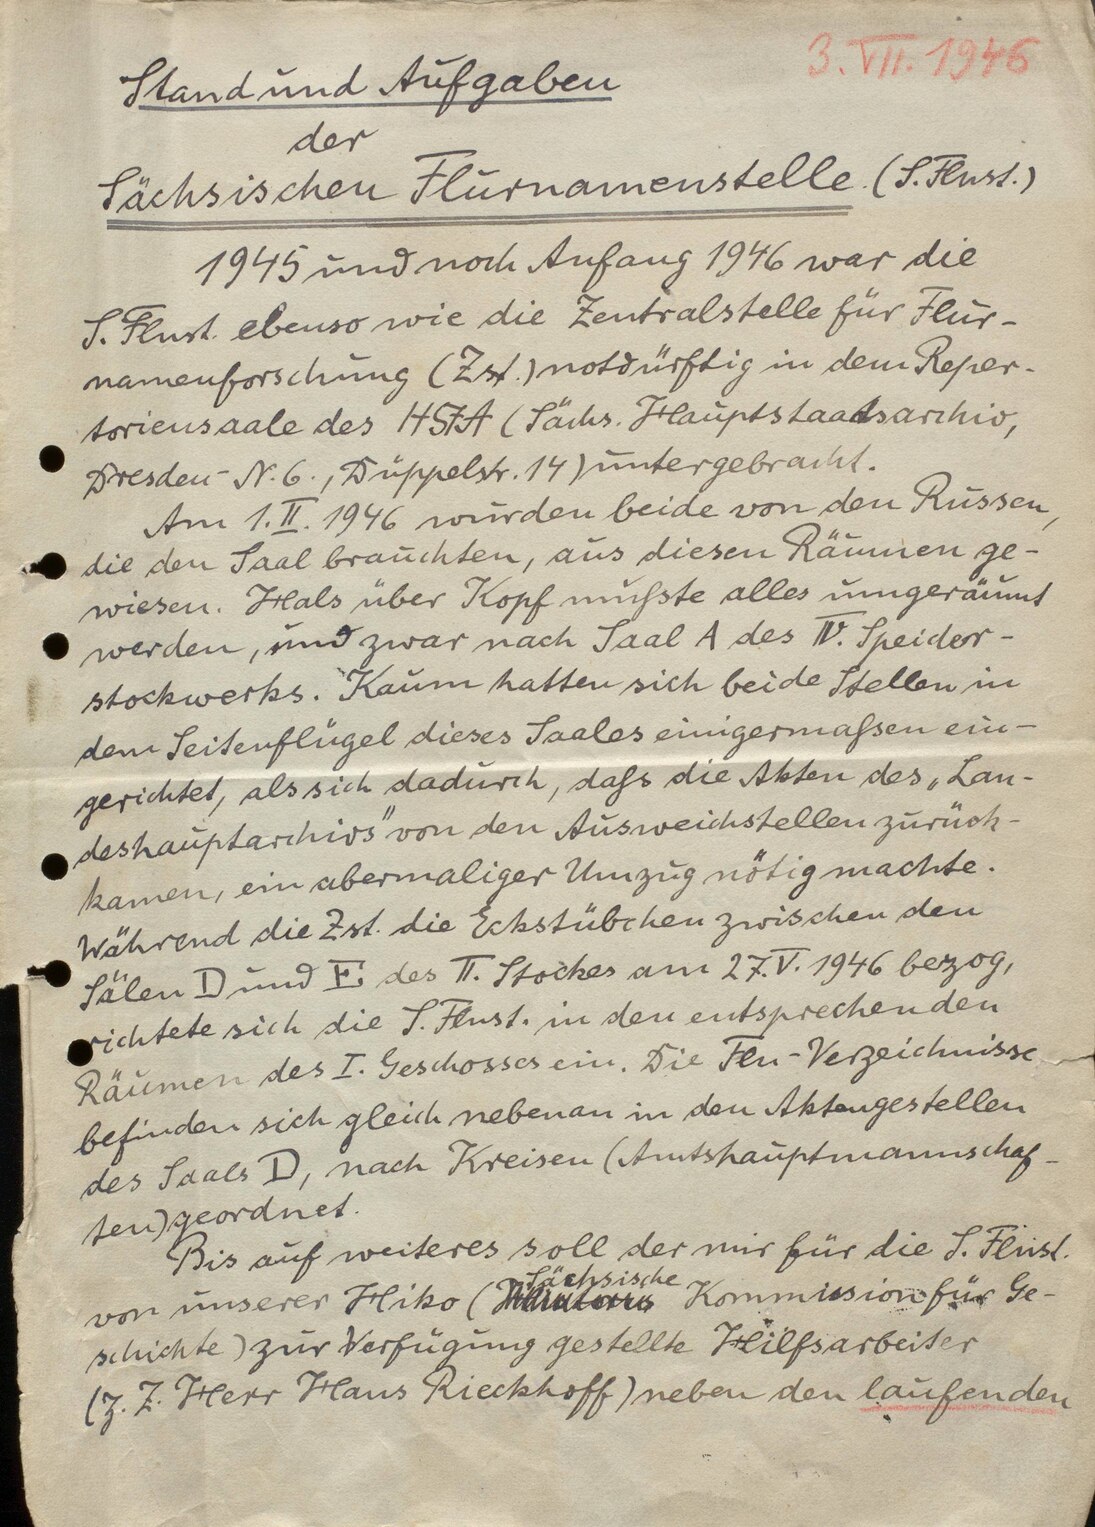 3. VII. 1946
Stand und Aufgaben
der
Sächsischen Flurnamenstelle (S. Flnst.)
1945 und noch Anfang 1946 war die
S. Flnst. ebenso wie die Zentralstelle für Flur-
namenforschung (Zst.) notdürftig in dem Reper-
toriensaale des HStA (Sächs. Hauptstaatsarchiv,
Dresden-N. 6., Düppelstr. 14) untergebracht.
Am 1. II. 1946 wurden beide von den Russen,
die den Saal brauchten, aus diesen Räumen ge-
wiesen. Hals über Kopf mußste alles umgeräumt
werden, und zwar nach Saal A des IV. Speicher-
stockwerks. Kaum hatten sich beide Stellen in
dem Seitenflügel dieses Saales einigermaßsen ein-
gerichtet, als sich dadurch, daßs die Akten des „Lan-
deshauptarchivs" von den Ausweichstellen zurück-
kamen, ein abermaliger Umzug nötig machte.
Während die Zst. die Eckstübchen zwischen den
Sälen D und E des II. Stockes am 27. V. 1946 bezog,
richtete sich die S. Flnst. in den entsprechenden
Räumen des I. Geschosses ein. Die Fln-Verzeichnisse
befinden sich gleich nebenan in den Aktengestellen
des Saals D, nach Kreisen (Amtshauptmannschaf-
ten) geordnet.
Bis auf weiteres soll der mir für die S. Flnst.
von unserer Hiko (Sächsische Kommission für Ge-
schichte) zur Verfügung gestellte Hilfsarbeiter
(z. Z. Herr Hans Rieckhoff) neben den laufenden